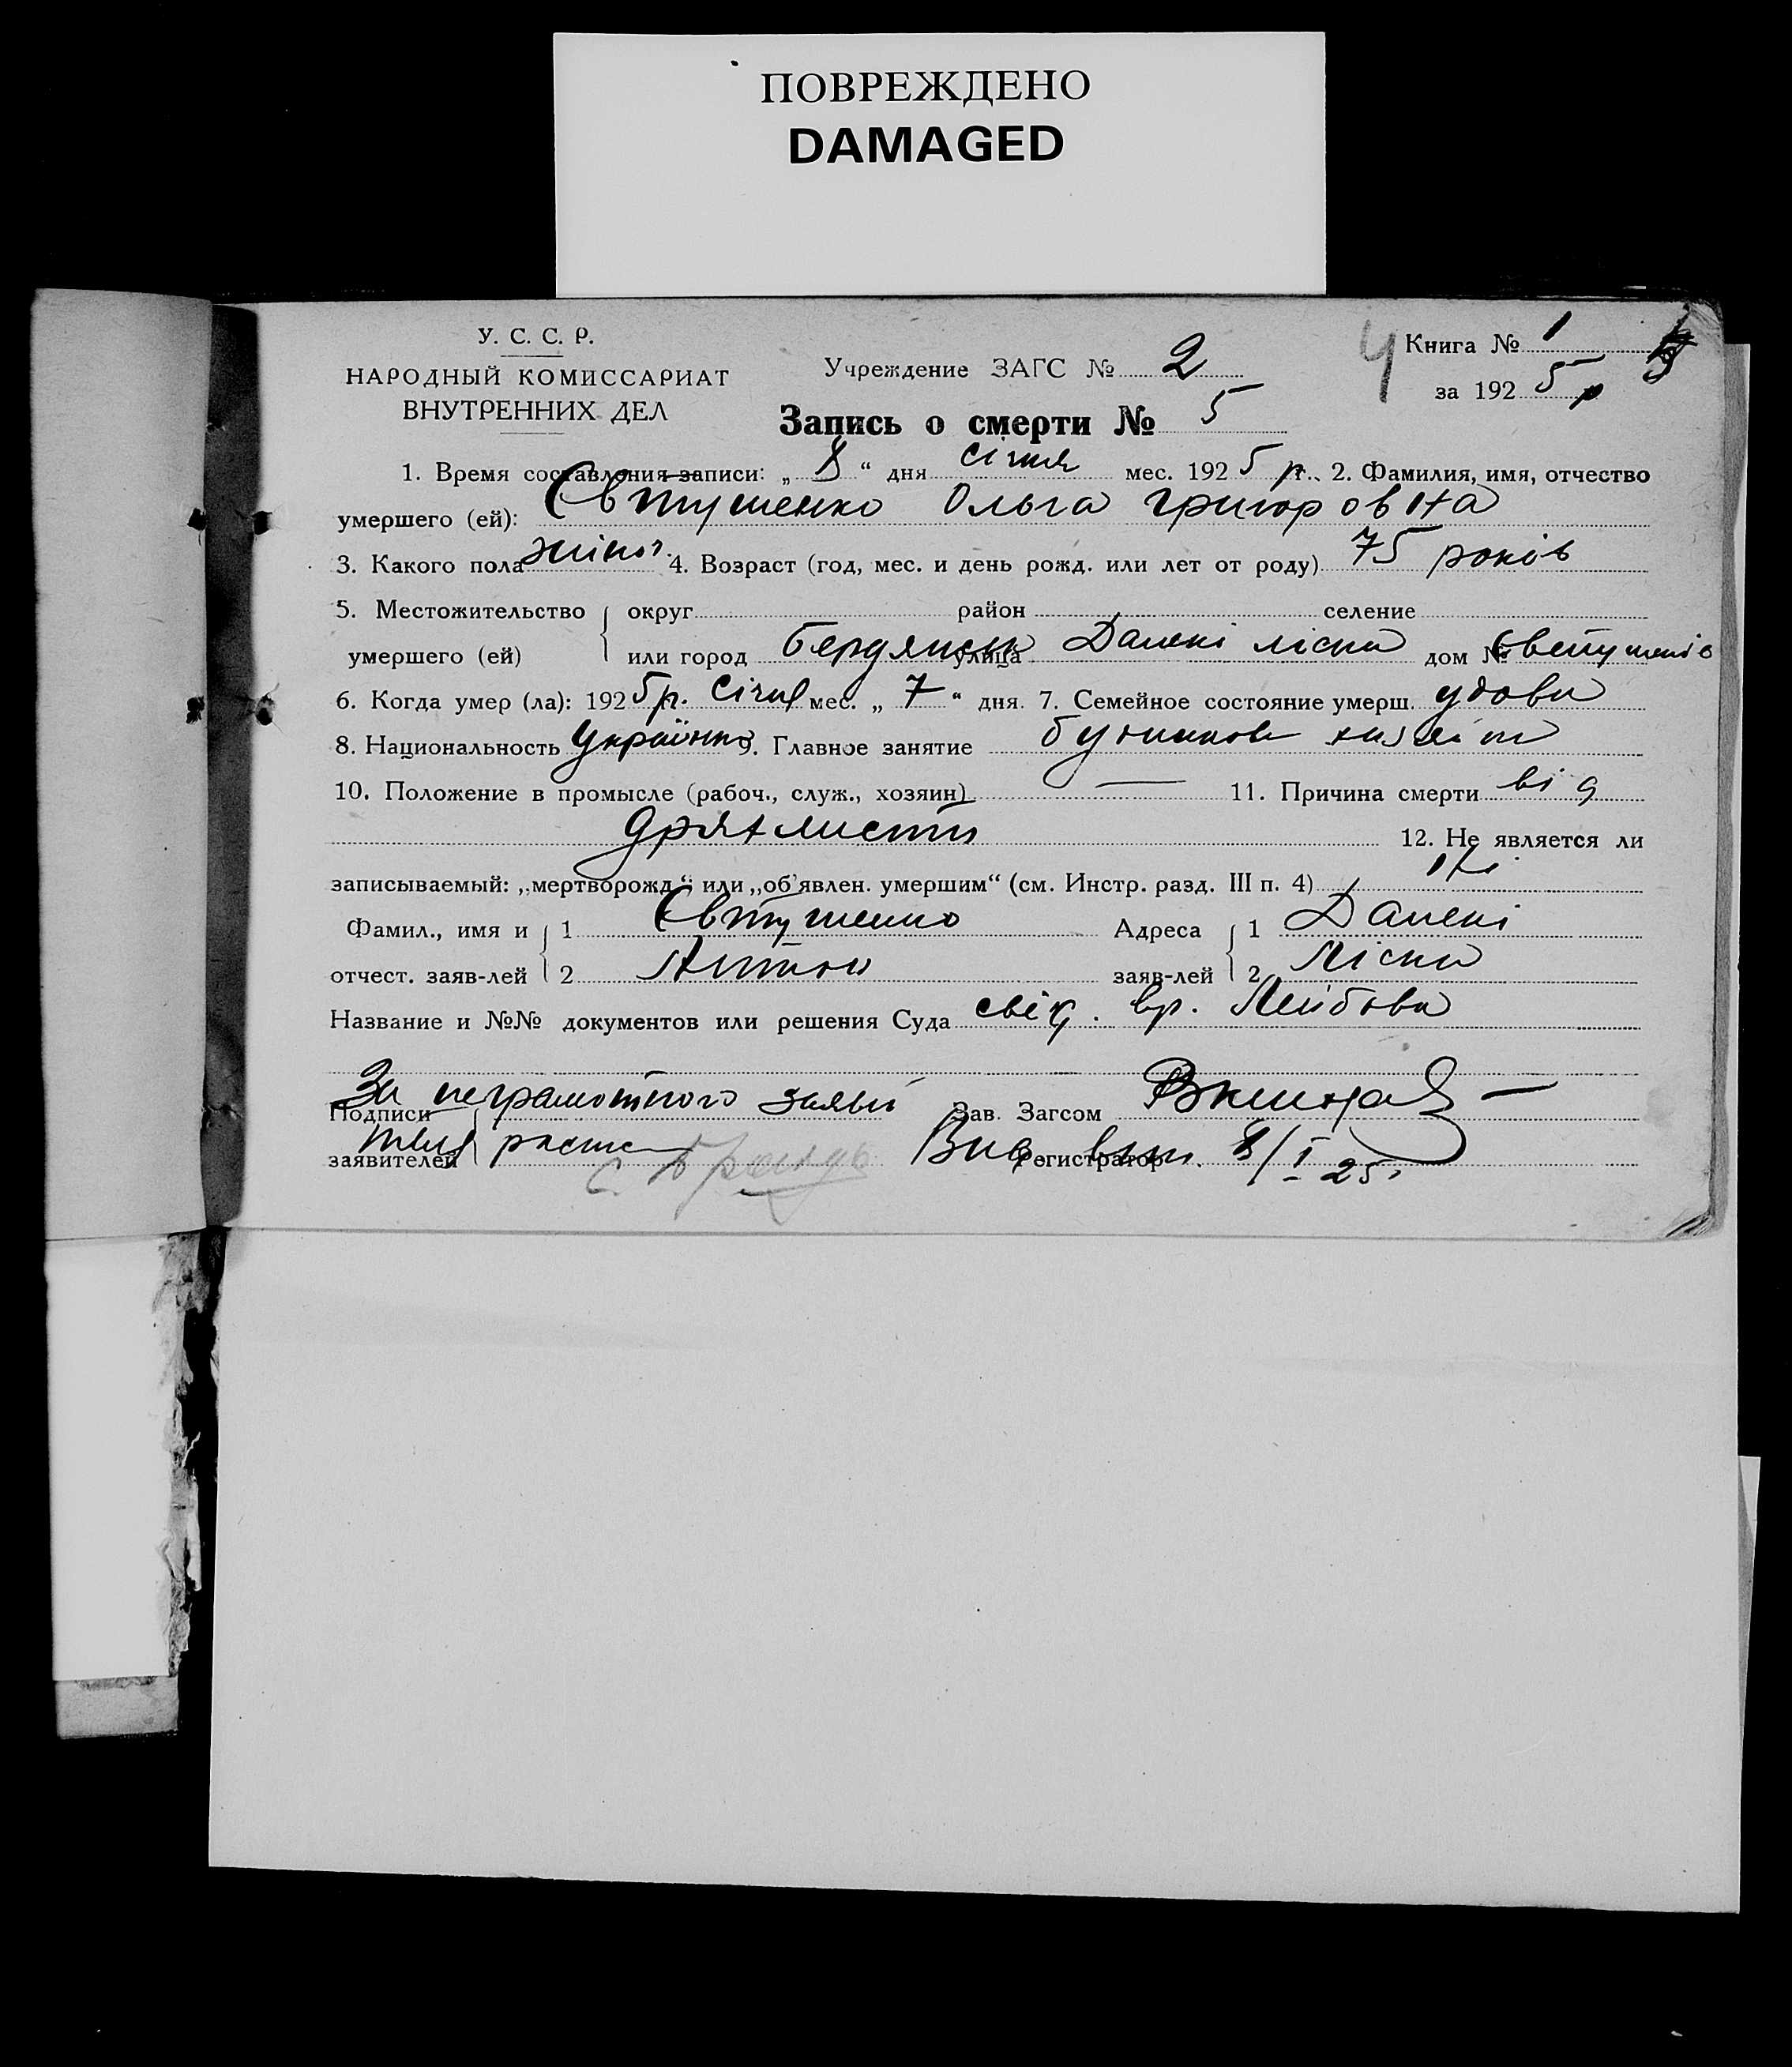 ПОВРЕЖДЕНО
DAMAGED
У. С. С. Р.
НАРОДНЫЙ КОМИССАРИАТ
ВНУТРЕННИХ ДЕЛ
Учреждение ЗАГС № 2
Книга № 1
за 1925 р
Запись о смерти № 5
1. Время составления записи: „ 8 “ дня січня мес. 1925 р. г. 2. Фамилия, имя, отчество
умершего (ей): Євтушенко Ольга Григоровна
3. Какого пола жіноч. 4. Возраст (год, мес. и день рожд. или лет от роду) 75 років
5. Местожительство округ район селение
умершего (ей) или город Бердянськ улица Далекі ліски дом №
6. Когда умер (ла): 1925 р. січня мес. „ 7 “ дня. 7. Семейное состояние умерш. удова
8. Национальность Українка 9. Главное занятие
10. Положение в промысле (рабоч., служ., хозяин) — 11. Причина смерти від
дряхлисти 12. Не является ли
записываемый: „мертворожд.“ или „об'явлен. умершим“ (см. Инстр. разд. III п. 4) ні
Фамил., имя и 1 Євтушенко Адреса 1 Далекі
отчест. заяв-лей 2 Антон заяв-лей 2 Ліски
Название и №№ документов или решения Суда свід. вр. Лейбова
За неграмотного заяви
Подписи Зав. Загсом
заявителей теля роспис Регистратор 8/I 25